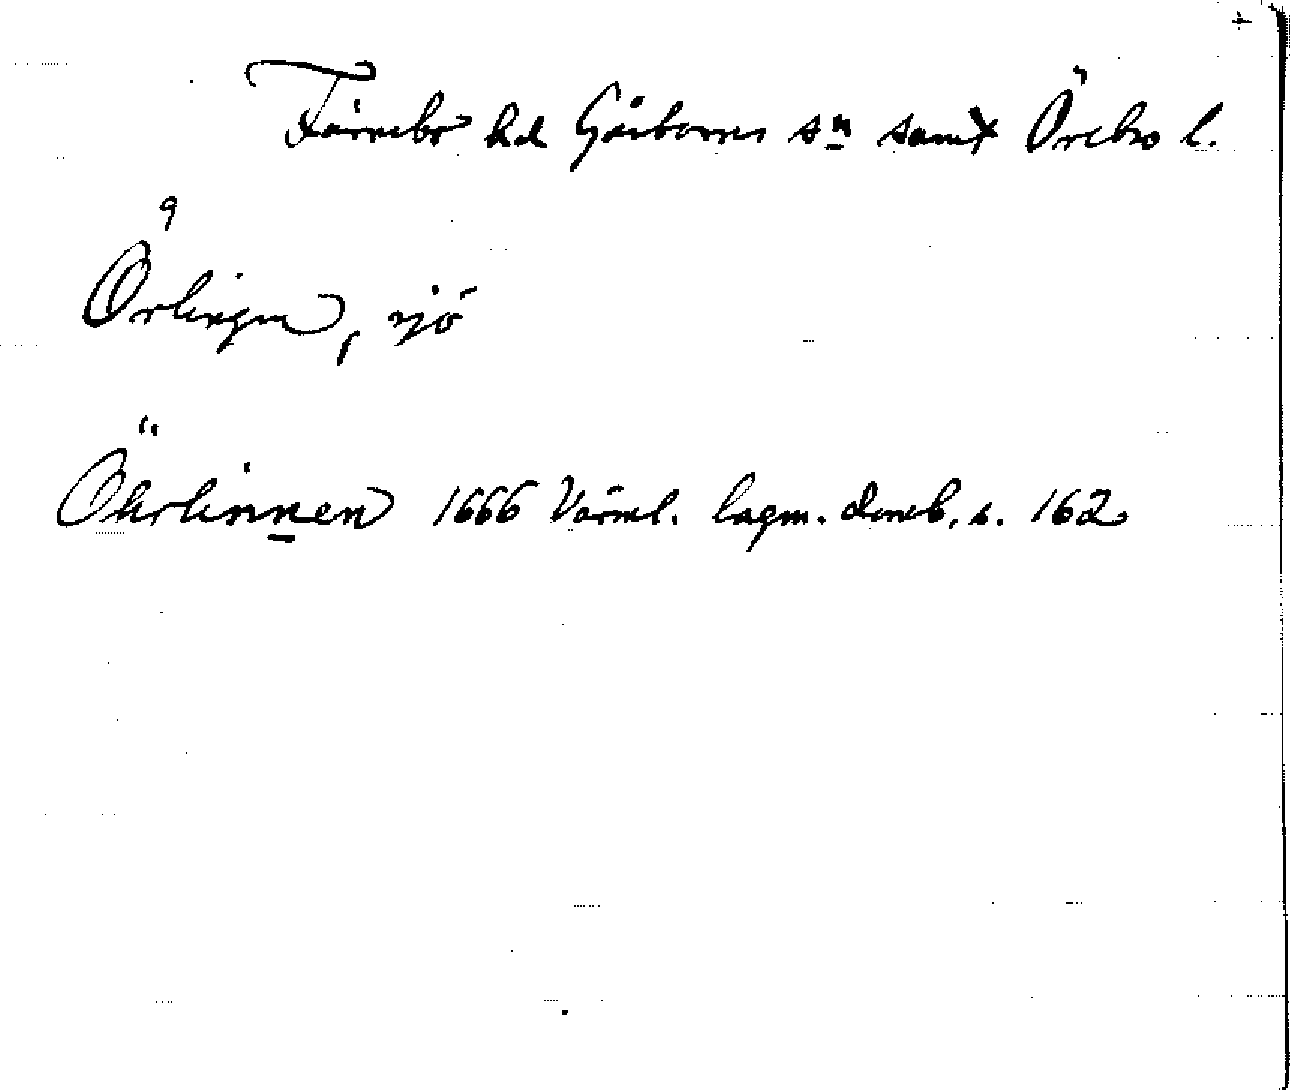 Färnebo hd Gåsborns sn samt Örebro l.
Örlingen, sjö
Öhrlinnen 1666 Värml. lagm. domb. s. 162